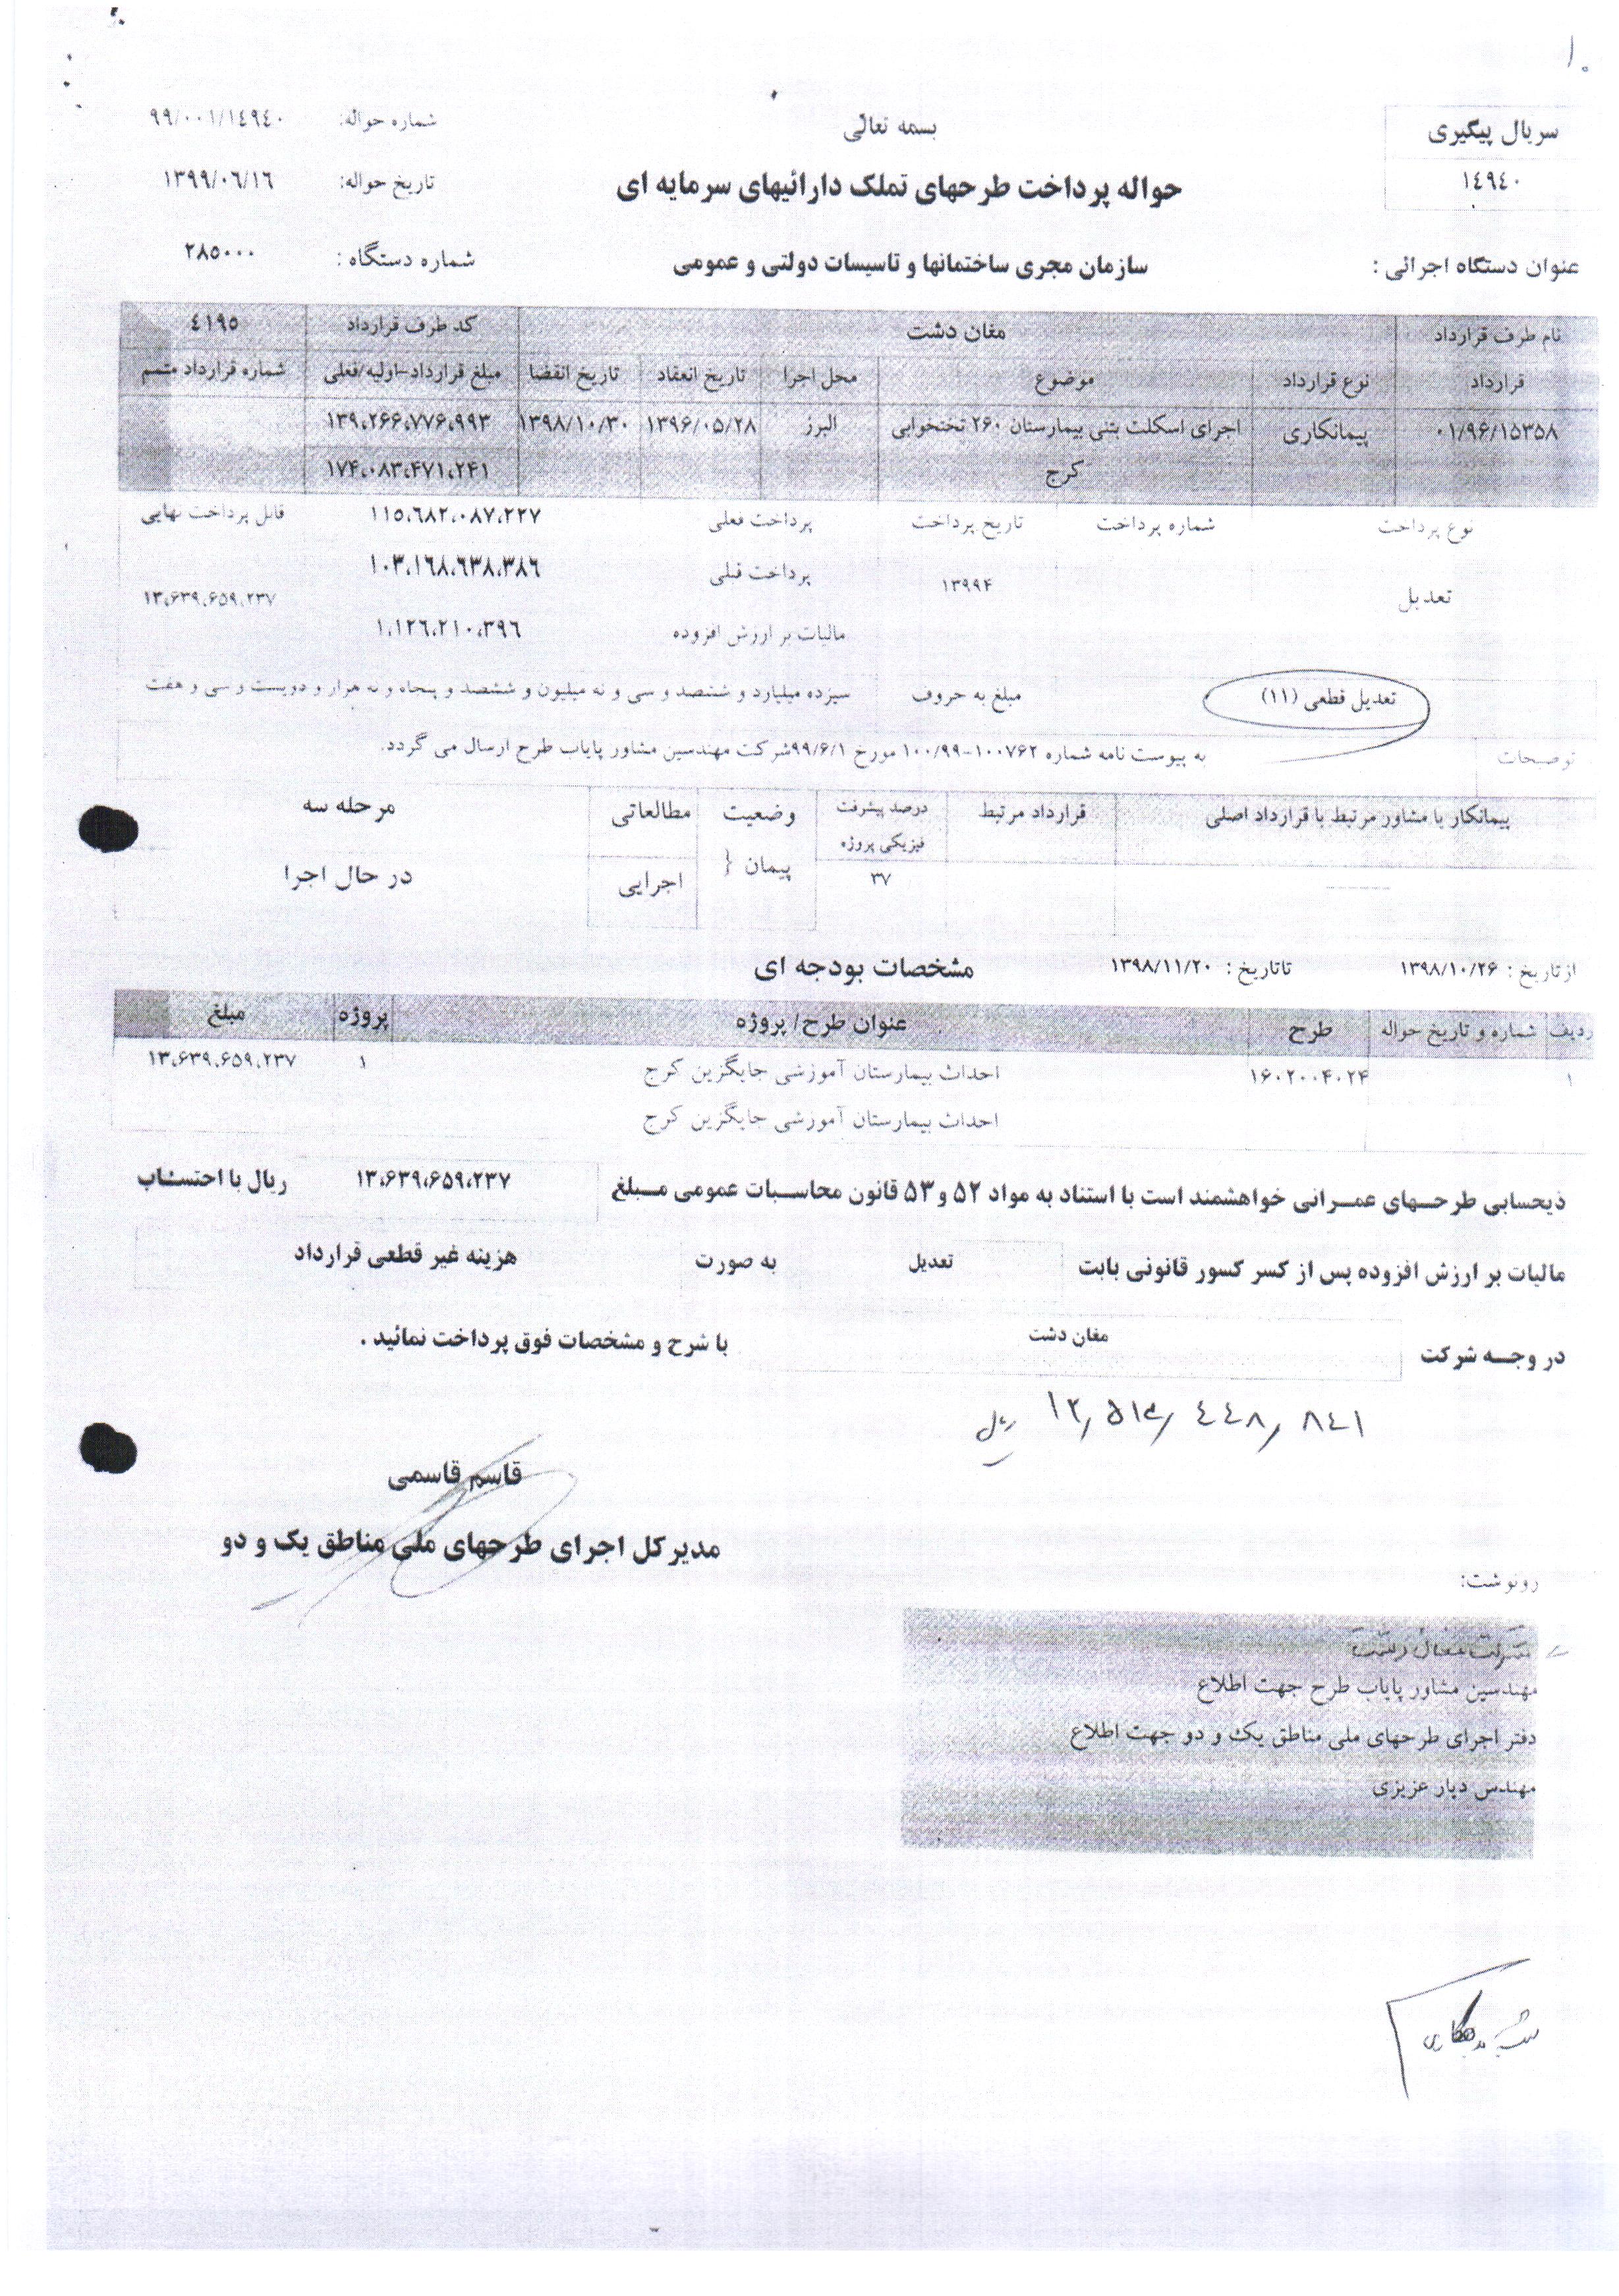 ۱۰
شماره حواله: ۹۹/۰۰۱/۱٤۹٤۰
بسمه تعالی
سریال پیگیری
۱٤۹٤۰
تاریخ حواله: ۱۳۹۹/۰٦/۱٦
حواله پرداخت طرحهای تملک دارائیهای سرمایه ای
عنوان دستگاه اجرائی : سازمان مجری ساختمانها و تاسیسات دولتی و عمومی شماره دستگاه : ۲۸۵۰۰۰
نام طرف قرارداد مغان دشت کد طرف قرارداد ٤۱۹۵
قرارداد نوع قرارداد موضوع محل اجرا تاریخ انعقاد تاریخ انقضا مبلغ قرارداد-اولیه/فعلی شماره قرارداد متمم
۰۱/۹۶/۱۵۳۵۸ پیمانکاری اجرای اسکلت بتنی بیمارستان ۲۶۰ تختخوابی البرز ۱۳۹۶/۰۵/۲۸ ۱۳۹۸/۱۰/۳۰ ۱۳۹،۲۶۶،۷۷۶،۹۹۳
کرج ۱۷۴،۰۸۳،۴۷۱،۲۴۱
نوع پرداخت شماره پرداخت تاریخ پرداخت پرداخت فعلی ۱۱۵،٦۸۲،۰۸۷،۲۲۷ قابل پرداخت نهایی
تعدیل ۱۳۹۹۴ پرداخت قبلی ۱۰۳،۱٦۸،٦۳۸،۳۸٦ ۱۳،۶۳۹،۶۵۹،۲۳۷
مالیات بر ارزش افزوده ۱،۱۲٦،۲۱۰،۳۹٦
تعدیل قطعی (۱۱) مبلغ به حروف سیزده میلیارد و ششصد و سی و نه میلیون و ششصد و پنجاه و نه هزار و دویست و سی و هفت
توضیحات به پیوست نامه شماره ۱۰۰۷۶۲-۱۰۰/۹۹ مورخ ۹۹/۶/۱شرکت مهندسین مشاور پایاب طرح ارسال می گردد.
پیمانکار یا مشاور مرتبط با قرارداد اصلی قرارداد مرتبط درصد پیشرفت فیزیکی پروژه وضعیت پیمان { مطالعاتی مرحله سه
-------- ۳۷ اجرایی در حال اجرا
از تاریخ : ۱۳۹۸/۱۰/۲۶ تاتاریخ : ۱۳۹۸/۱۱/۲۰ مشخصات بودجه ای
ردیف شماره و تاریخ حواله طرح عنوان طرح/ پروژه پروژه مبلغ
۱ ۱۶۰۲۰۰۴۰۲۴ احداث بیمارستان آموزشی جایگزین کرج ۱ ۱۳،۶۳۹،۶۵۹،۲۳۷
احداث بیمارستان آموزشی جایگزین کرج
ذیحسابی طرحهای عمرانی خواهشمند است با استناد به مواد ۵۲ و ۵۳ قانون محاسبات عمومی مبلغ ۱۳،۶۳۹،۶۵۹،۲۳۷ ریال با احتساب
مالیات بر ارزش افزوده پس از کسر کسور قانونی بابت تعدیل به صورت هزینه غیر قطعی قرارداد
در وجه شرکت مغان دشت با شرح و مشخصات فوق پرداخت نمائید .
۱۲,۵۱۳,٤٤۸,۸٤۱ ریال
قاسم قاسمی
مدیرکل اجرای طرحهای ملی مناطق یک و دو
رونوشت:
شرکت مغان دشت
مهندسین مشاور پایاب طرح جهت اطلاع
دفتر اجرای طرحهای ملی مناطق یک و دو جهت اطلاع
مهندس دیار عزیزی